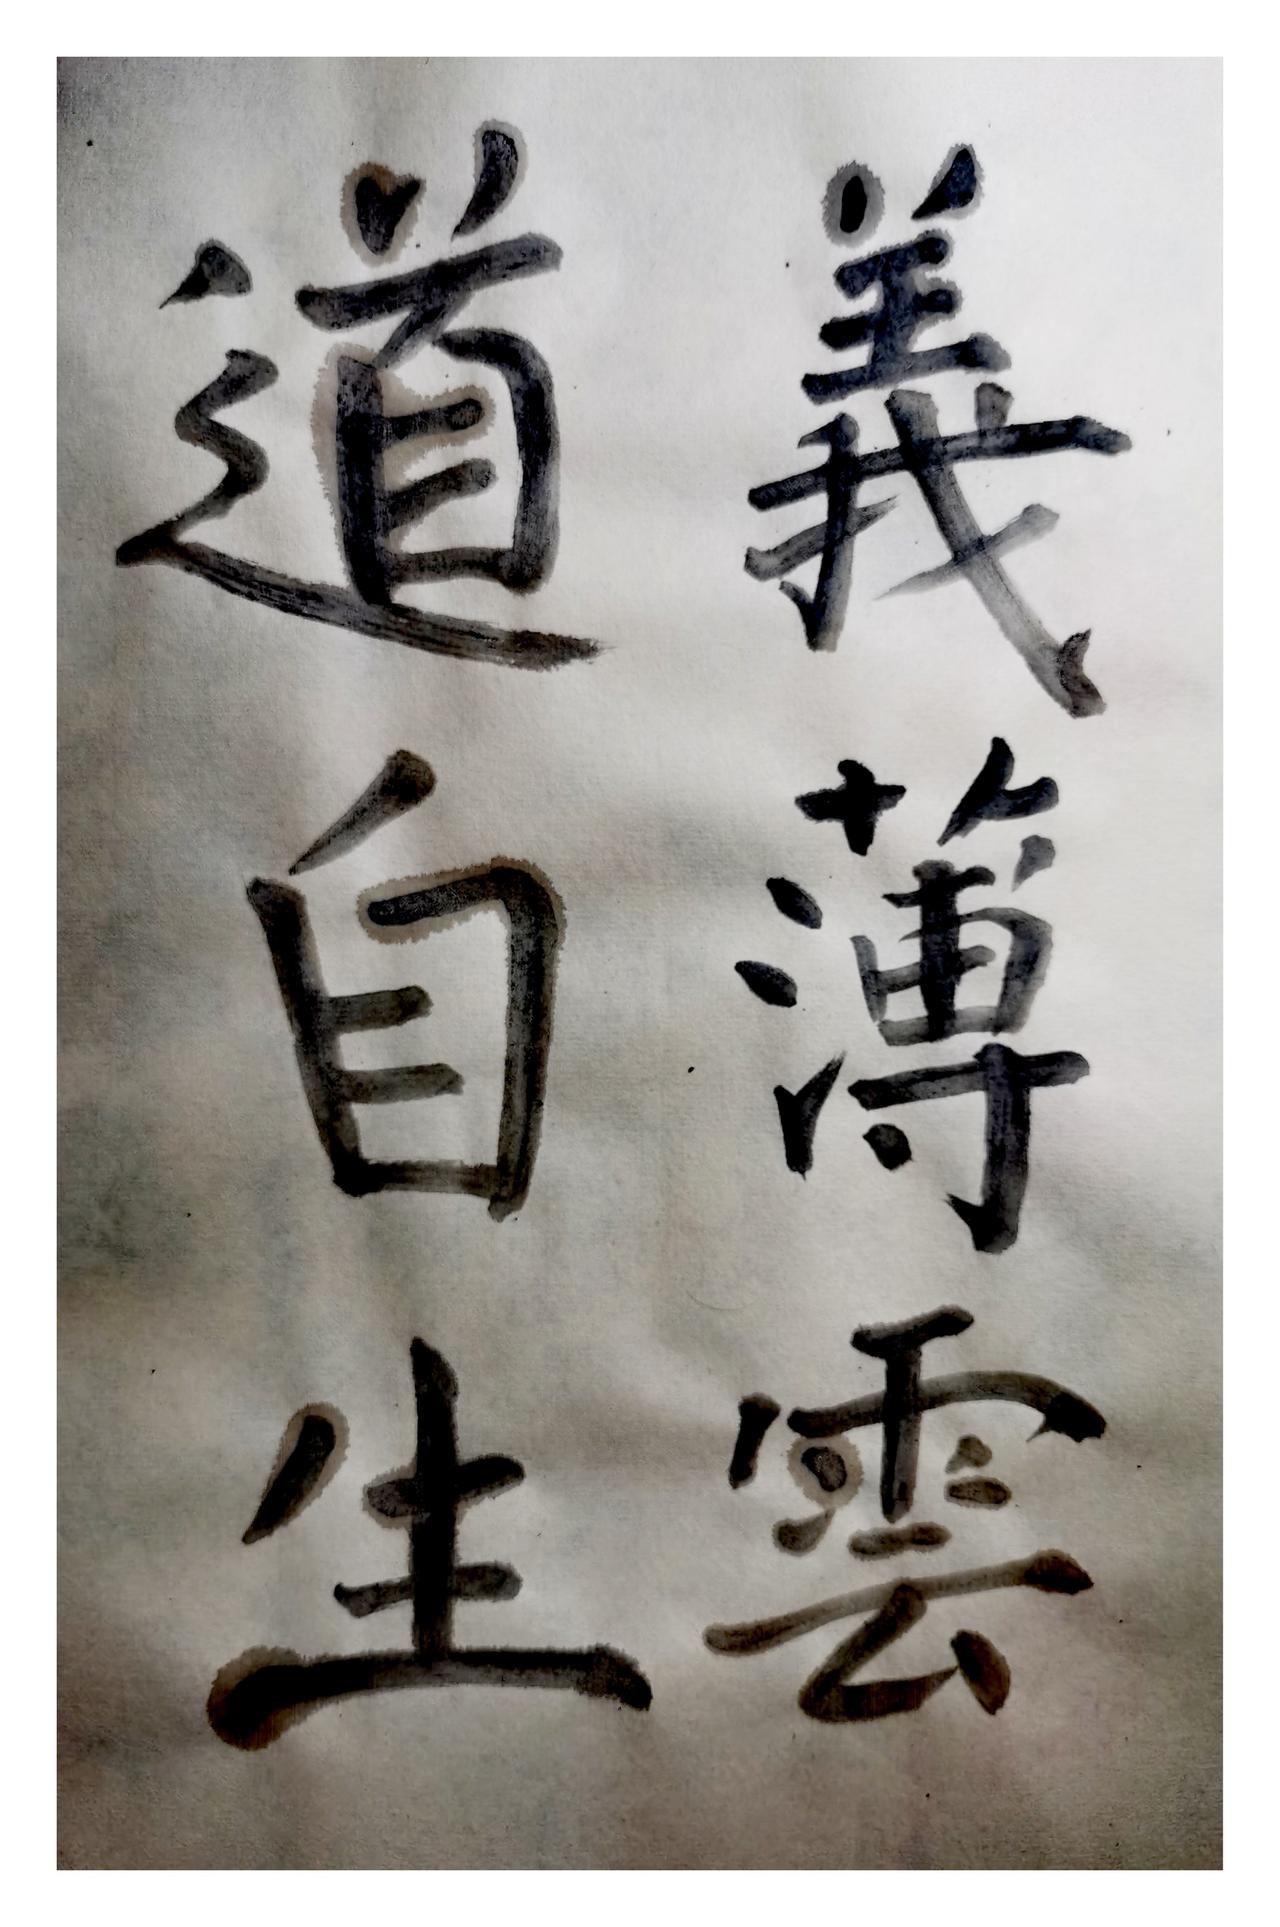 義薄雲
道自生